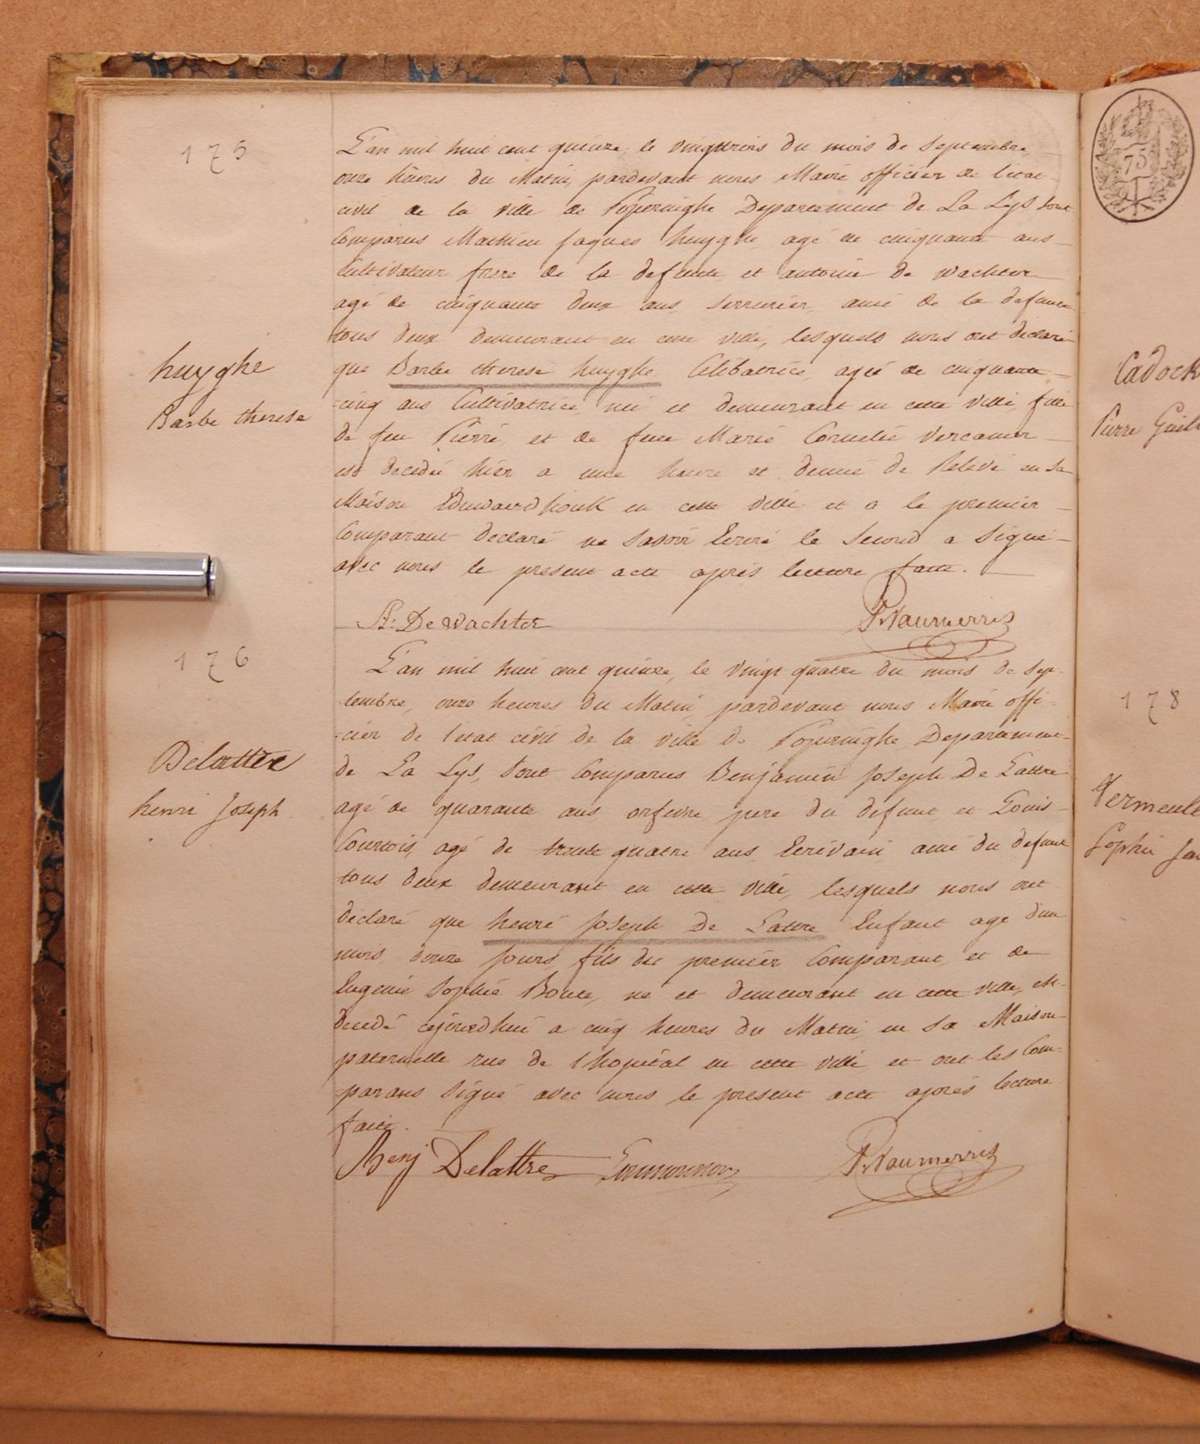 175
L'an mil huit cent quinze, le vingttrois du mois de Septembre
onze heures du Matin, pardevant nous Maire officier de l'etat
civil de la ville de Poperinghe Departement de La Lys, sont
Comparus Mathieu jaques huyghe, agé de cinquante ans
Cultivateur frere de la defunte, et antoine de wachter
agé de cinquante deux ans, serrurier, ami de la defunte
tous deux demeurant en cette ville, lesquels nous ont déclaré
que Barbe therese huyghe Célibatrice, agée de cinquante
cinq ans Cultivatrice née et demeurant en cette ville, fille
de feu Pierre, et de feue Marie Cornelie Vercamer
est decedée hier a une heure et demie de Relevé en sa
Maison Edewaerdhoek en cette ville et a le premier
Comparant declaré ne savoir Ecrire le second a signé
avec nous le present acte après lecture faite.
huyghe
Barbe therese
A: De Wachter
176
L'an mil huit cent quinze, le vingt quatre du mois de Sep-
-tembre, onze heures du Matin, pardevant nous Maire offi-
-cier de l'etat civil de la ville de Poperinghe Departement
de La Lys, sont Comparus Benjamin Joseph De Lattre
agé de quarante ans orfevre pere du défunt, et Louis
Courtois, agé de trente quatre ans Ecrivain ami du defunt
tous deux demeurant en cette ville, lesquels nous ont
déclaré que henri Joseph De Lattre Enfant agé d'un
mois douze jours fils du premier Comparant, et de
Eugenie Sophie Boute, né et demeurant en cette ville, est
decedé cejourdhui a cinq heures du Matin, en sa Maison
paternelle rue de l'hopital en cette ville et ont les Com-
parans signé avec nous le present acte après lecture
faite.
Delattre
henri Joseph
Benj Delattre
Cadock
Pierre
178
Sophie
75